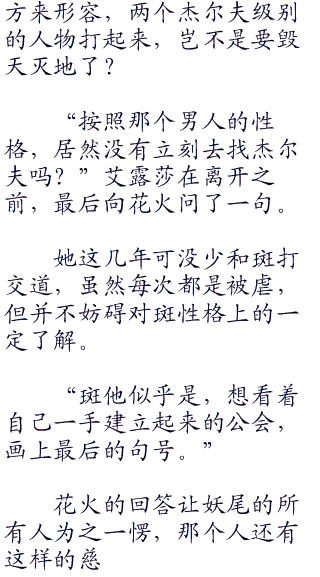 方来形容，两个杰尔夫级别
的人物打起来，岂不是要毁
天灭地了？
“按照那个男人的性
格，居然没有立刻去找杰尔
夫吗？”艾露莎在离开之
前，最后向花火问了一句。
她这几年可没少和斑打
交道，虽然每次都是被虐，
但并不妨碍对斑性格上的一
定了解。
“斑他似乎是，想看着
自己一手建立起来的公会，
画上最后的句号。”
花火的回答让妖尾的所
有人为之一愣，那个人还有
这样的慈